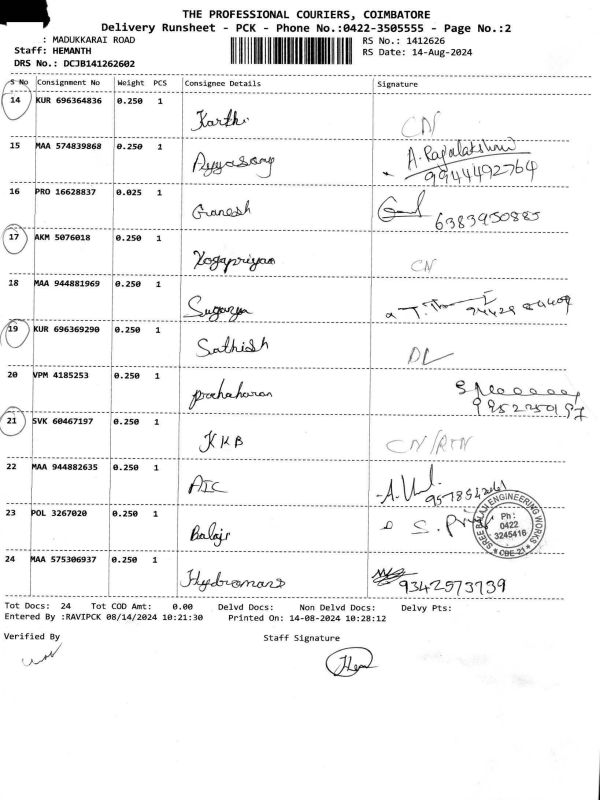 THE PROFESSIONAL COURIERS, COIMBATORE
Delivery Runsheet - PCK - Phone No.:0422-3505555 - Page No.:2
: MADUKKARAI ROAD
Staff: HEMANTH
DRS No.: DCJB141262602
RS No.: 1412626
RS Date: 14-Aug-2024
S No Consignment No Weight PCS Consignee Details Signature
14 KUR 696364836 0.250 1 Karthi CN
15 MAA 574839868 0.250 1 Ayyasamy A. Rajalakshmi
9944492764
16 PRO 16628837 0.025 1 Ganesh 6383950885
17 AKM 5076018 0.250 1 Yogapriyan CN
18 MAA 944881969 0.250 1 Suganya
19 KUR 696369290 0.250 1 Sathish DL
20 VPM 4185253 0.250 1 prabaharan
9952250197
21 SVK 60467197 0.250 1 KKB CN/RTN
22 MAA 944882635 0.250 1 AIC
23 POL 3267020 0.250 1 Balaji S. Priya
SREE BALAJI ENGINEERING WORKS
Ph:
0422
3245416
CBE-21
24 MAA 575306937 0.250 1 Hydromans 9342573739
Tot Docs: 24 Tot COD Amt: 0.00 Delvd Docs: Non Delvd Docs: Delvy Pts:
Entered By :RAVIPCK 08/14/2024 10:21:30 Printed On: 14-08-2024 10:28:12
Verified By Staff Signature
Hem